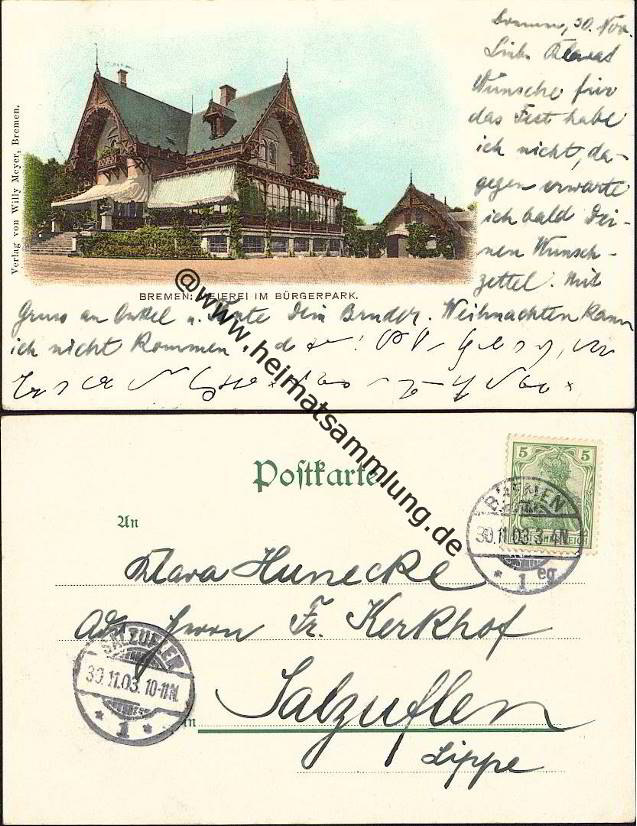 Verlag von Willy Meyer, Bremen.
Bremen, 30. Nov.
Liebe Klara!
Wünsche für
das Fest habe
ich nicht, da-
gegen erwarte
ich bald Dei-
nen Wunsch-
zettel. Mit
BREMEN: MEIEREI IM BÜRGERPARK.
Gruss an Onkel u. Tante Dein Bruder. Weihnachten kann
ich nicht kommen
@www.heimatsammlung.de
Postkarte
5 5
BREMEN
30.11.03. 3-4N.
* 1 eg
An
Klara Hunecke
Adr. Herrn Fr. Kerkhof
SALZUFLEN
30.11.03. 10-11N.
* 1 *
in Salzuflen
Lippe